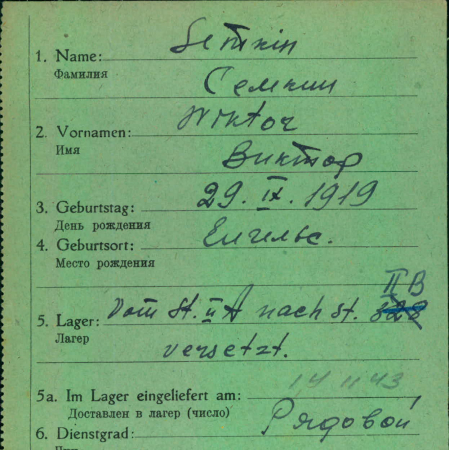 1. Name: Semkin
Фамилия
Семкин
2. Vornamen: Wiktor
Имя
Виктор
3. Geburtstag: 29. IX. 1919
День рождения
4. Geburtsort: Енгельс.
Место рождения
II B
5. Lager: Vom St. II A nach St. 328
Лагер
versetzt.
5a. Im Lager eingeliefert am: 14 11 43
Доставлен в лагер (число)
6. Dienstgrad: Рядовой